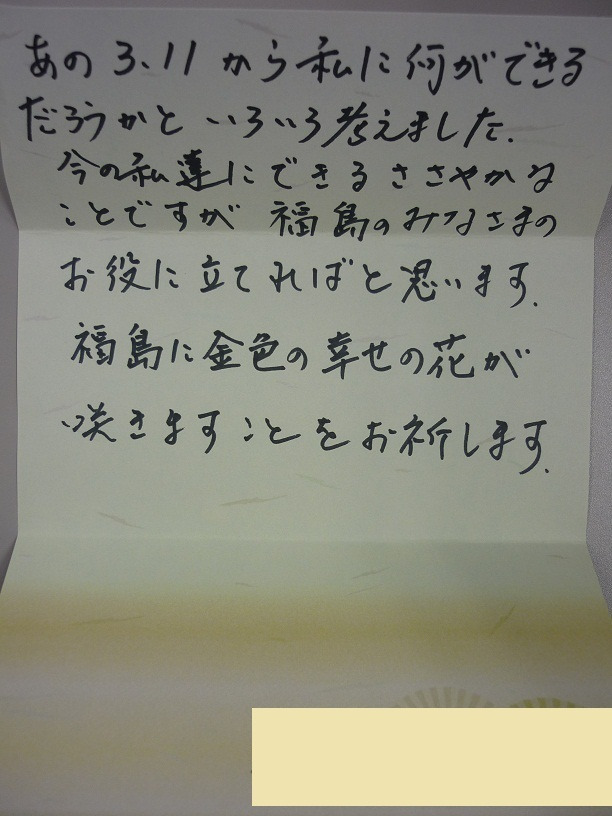 あの 3.11 から 私に 何ができる
だろうかと いろいろ考えました.
今の私達にできるささやかな
ことですが 福島のみなさまの
お役に立てればと思います.
福島に金色の幸せの花が
咲きますことをお祈します.